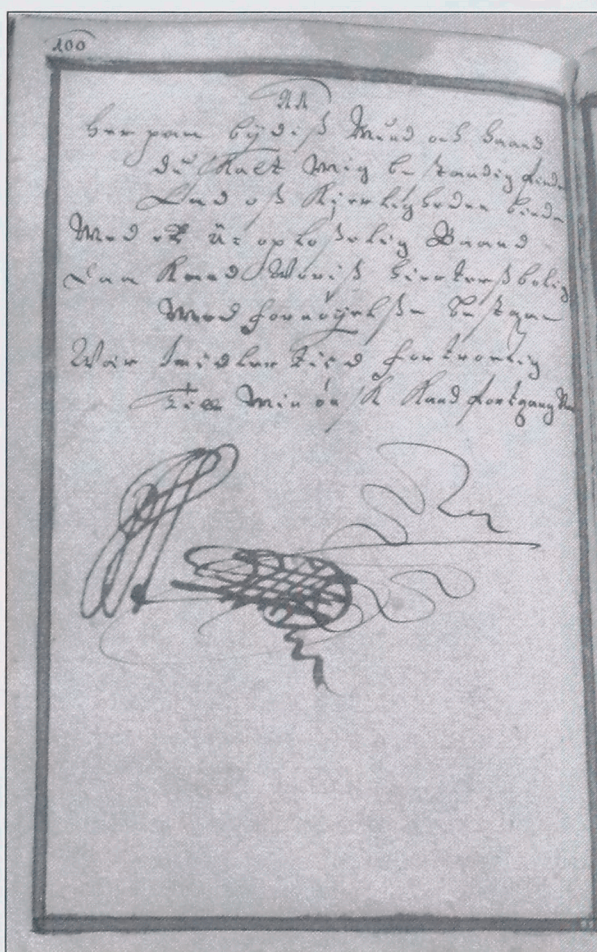 100
11
her paa bÿdiß Mund och Haand
du skalt Mig bestandig finde
Lad oß Kjerligheden binde
Med et u-opløßelig Baand
Daa Kand
Med fornøyelße bestaae
Wær imidlertied fortroelig
till Min ønsk Kand fortgang